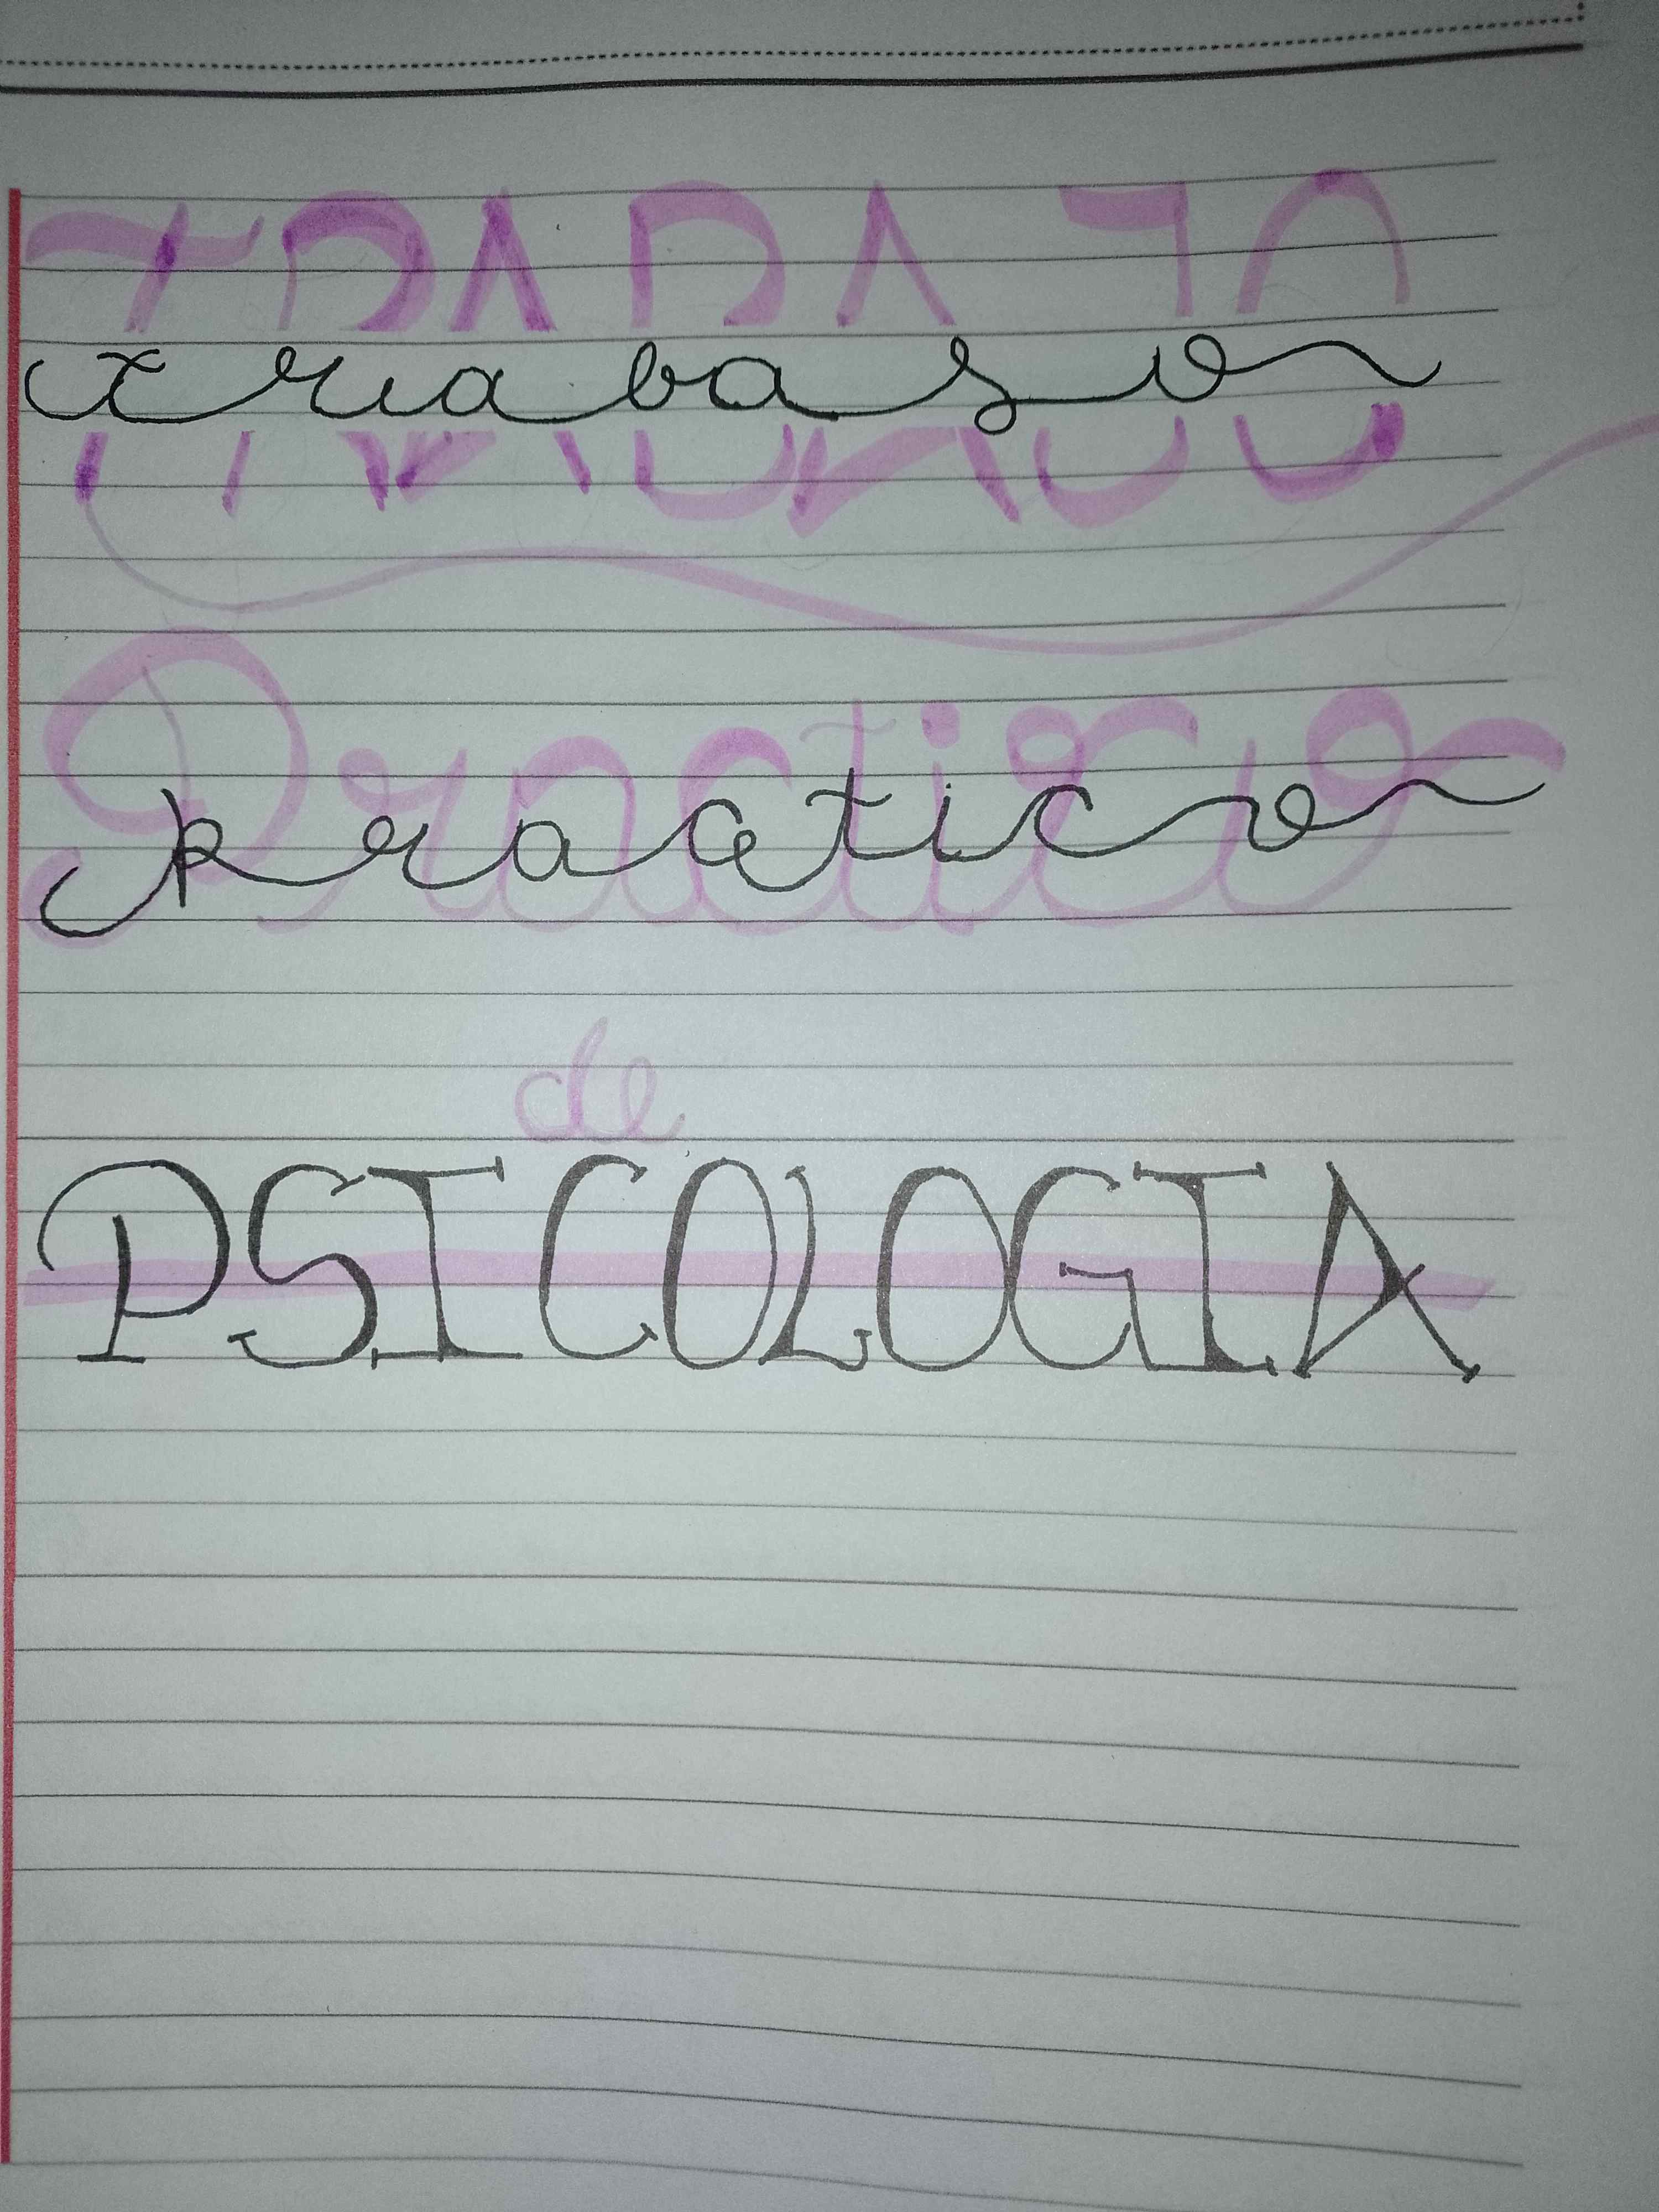 TRABAJO
trabajo
Practico
practico
de
PSICOLOGIA